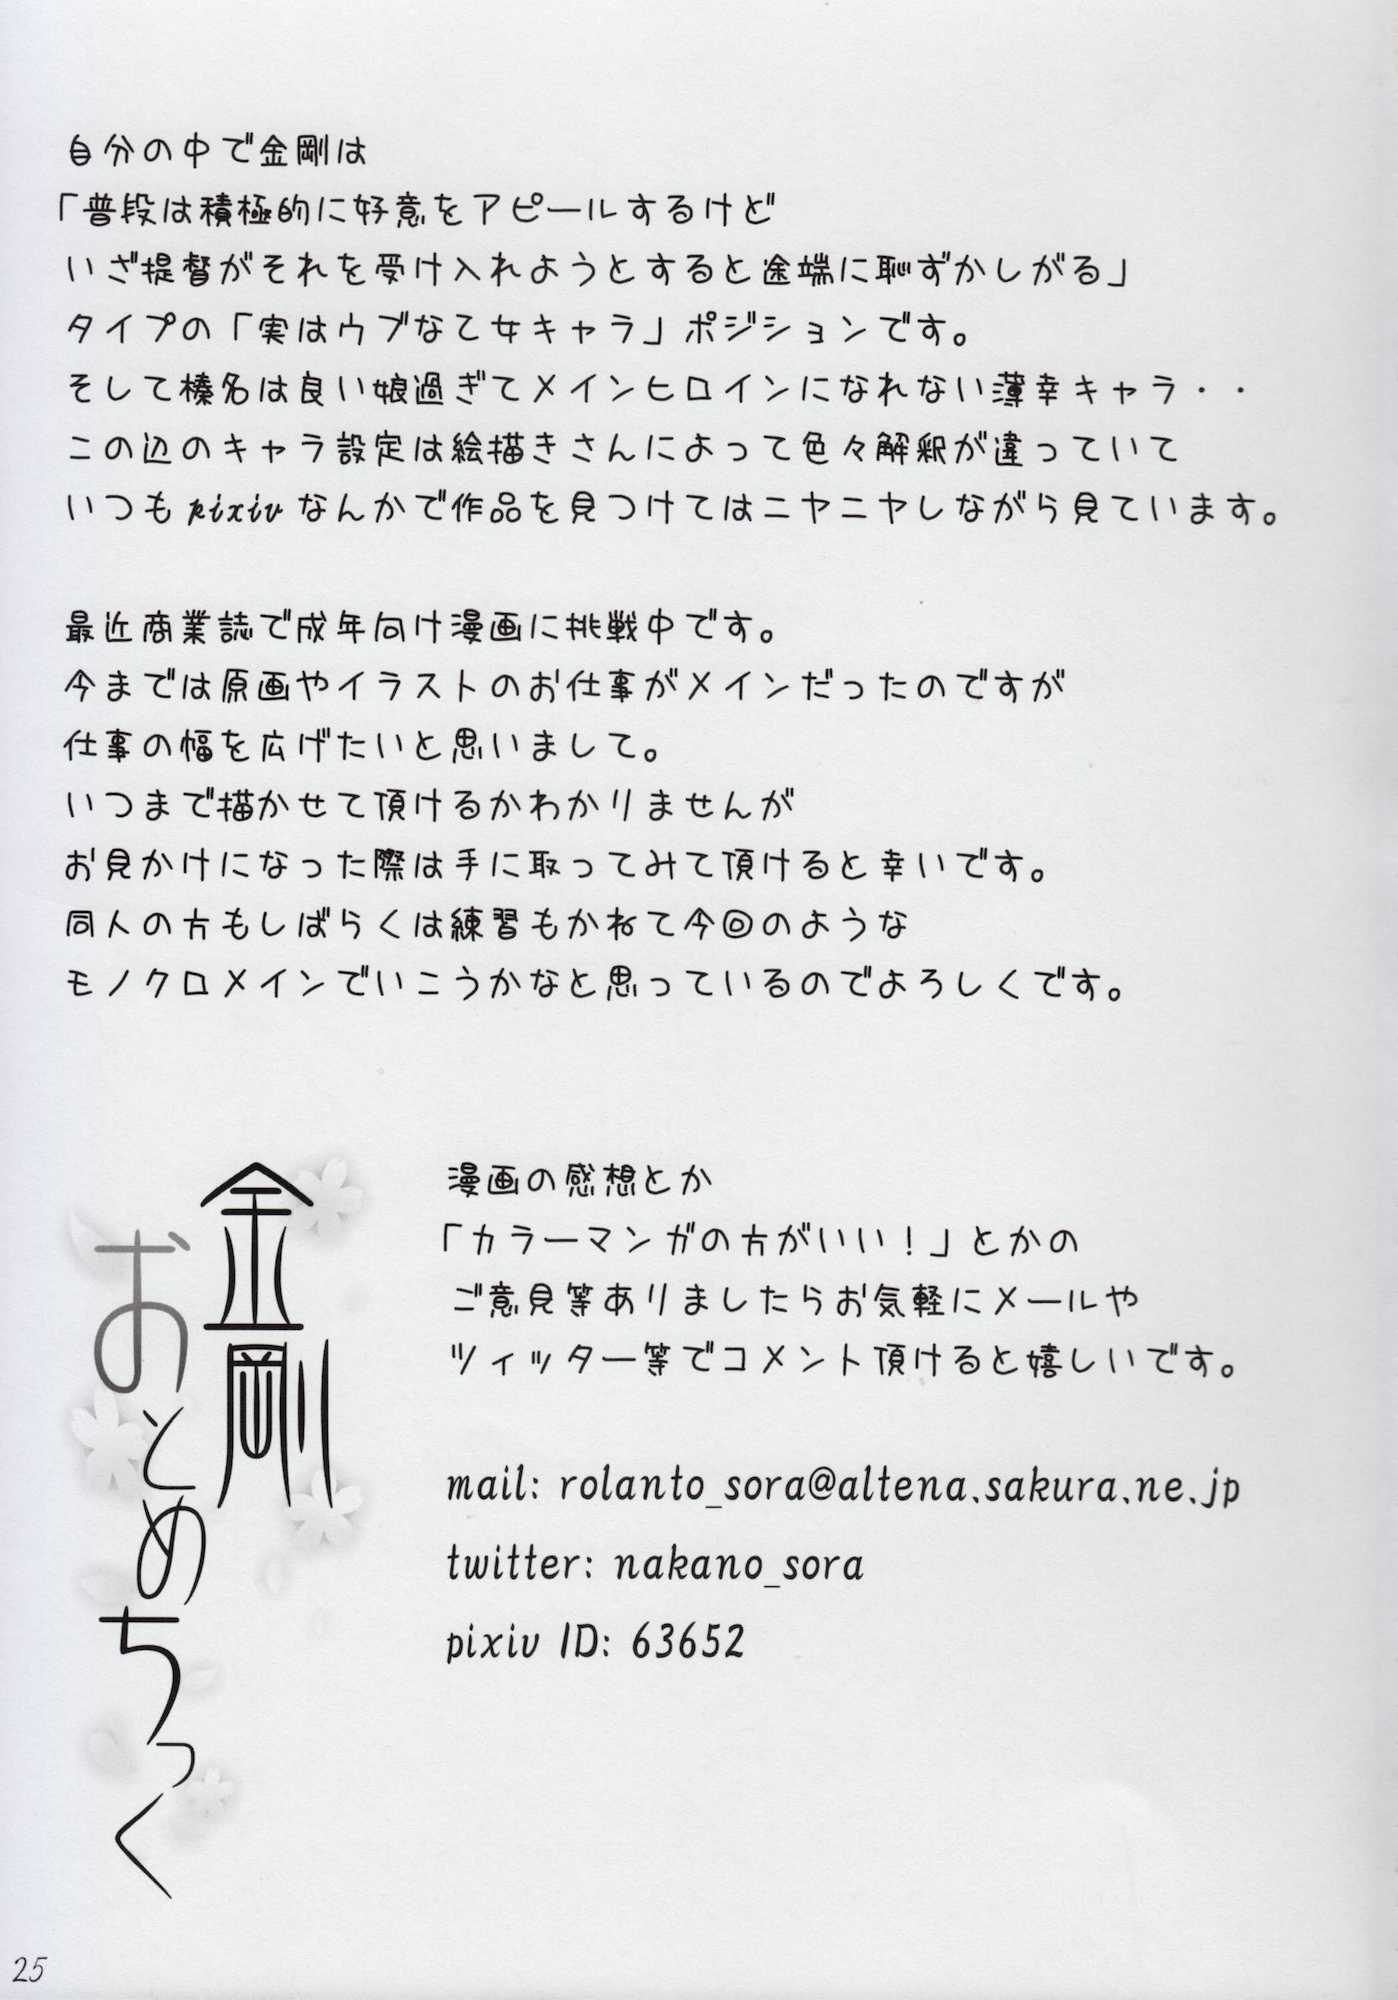 自分の中で金剛は
「普段は積極的に好意をアピールするけど
いざ提督がそれを受け入れようとすると途端に恥ずかしがる」
タイプの「実はウブな乙女キャラ」ポジションです。
そして榛名は良い娘過ぎてメインヒロインになれない薄幸キャラ・・
この辺のキャラ設定は絵描きさんによって色々解釈が違っていて
いつもpixivなんかで作品を見つけてはニヤニヤしながら見ています。
最近商業誌で成年向け漫画に挑戦中です。
今までは原画やイラストのお仕事がメインだったのですが
仕事の幅を広げたいと思いまして。
いつまで描かせて頂けるかわかりませんが
お見かけになった際は手に取ってみて頂けると幸いです。
同人の方もしばらくは練習もかねて今回のような
モノクロメインでいこうかなと思っているのでよろしくです。
金剛
おとめちっく
漫画の感想とか
「カラーマンガの方がいい！」とかの
ご意見等ありましたらお気軽にメールや
ツィッター等でコメント頂けると嬉しいです。
mail: rolanto_sora@altena.sakura.ne.jp
twitter: nakano_sora
pixiv ID: 63652
25